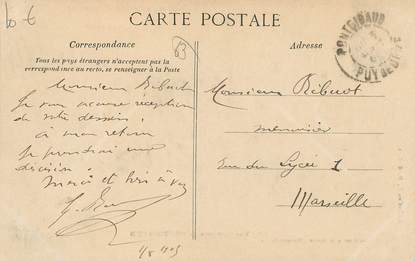 10 €
CARTE POSTALE
Correspondance
63
Adresse
Tous les pays étrangers n'acceptent pas la
correspondance au recto, se renseigner à la Poste
PONTGIBAUD
PUY DE DÔME
Monsieur Ribuot
Je vous accuse réception
de votre dessin;
à mon retour
je prendrai une
décision.
Merci et bien à vous
Monsieur Ribuot
menuisier
rue du Lycée 1
Marseille